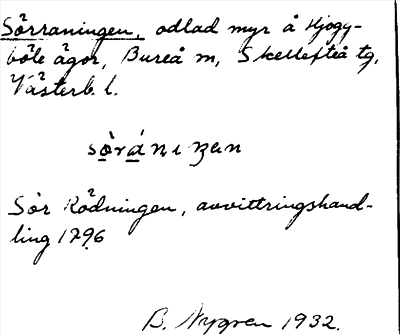 Sörraningen, odlad myr å Hjogg-
böle ägor, Bureå m, Skellefteå tg,
Västerb. l.
Sör Rödningen, avvittringshand-
ling 1796
B. Nygren 1932.